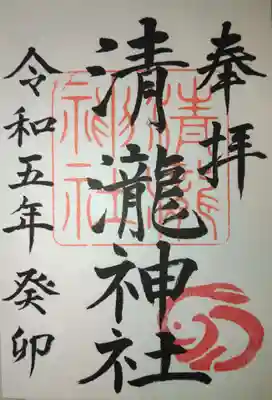 奉拝
清瀧神社
令和五年 癸卯
清瀧
神社